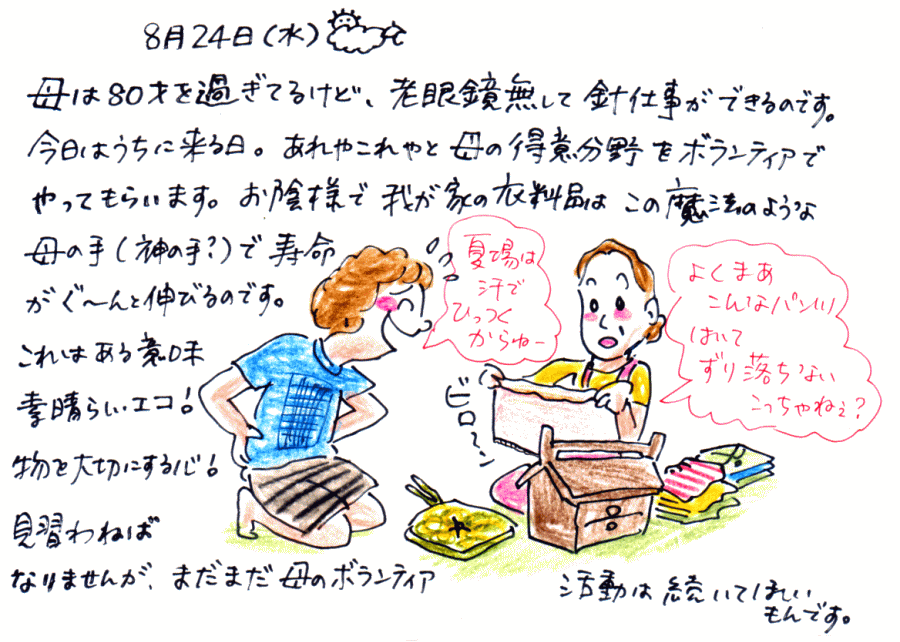 8月24日(水)
母は80才を過ぎてるけど、老眼鏡無しで針仕事ができるのです。
今日はうちに来る日。あれやこれやと母の得意分野をボランティアで
やってもらいます。お陰様で我が家の衣料品はこの魔法のような
母の手(神の手?)で寿命
がぐ〜んと伸びるのです。
これはある意味
素晴らしいエコ!
物を大切にする心!
見習わねば
なりませんが、まだまだ母のボランティア
活動は続いてほしい
もんです。
夏場は
汗で
ひっつく
からねー
よくまあ
こんなパンツ
はいて
ずり落ちない
こっちゃねぇ?
ビロ〜ン